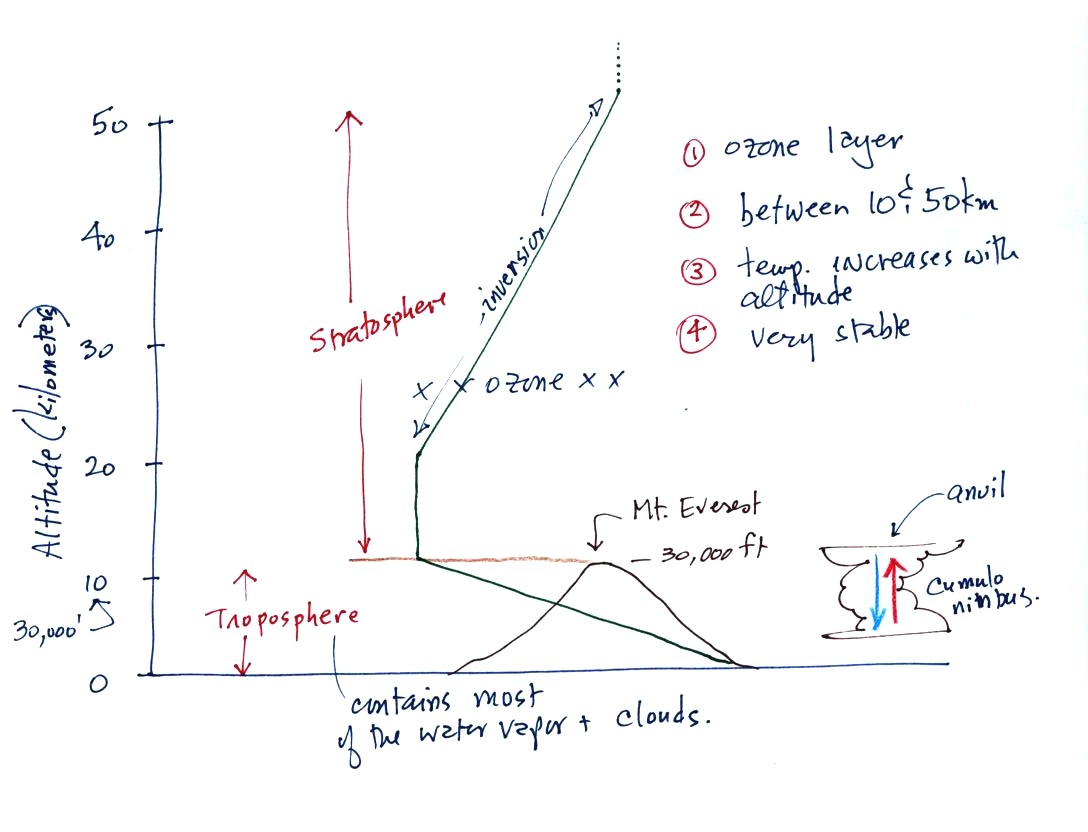 50
40
30
20
10
30,000'
0
Altitude (kilometers)
Stratosphere
inversion
x x ozone x x
① ozone layer
② between 10 & 50km
③ temp. increases with
altitude
④ very stable
Mt. Everest
– 30,000 ft
anvil
Cumulo
nimbus.
Troposphere
contains most
of the water vapor + clouds.